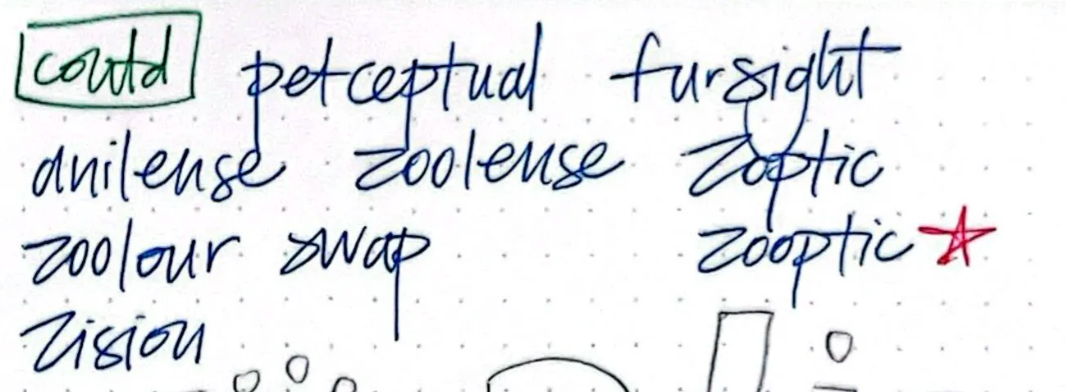 could petceptual fursight
anilense zoolense Zoptic
zoolour swap zooptic
Zision